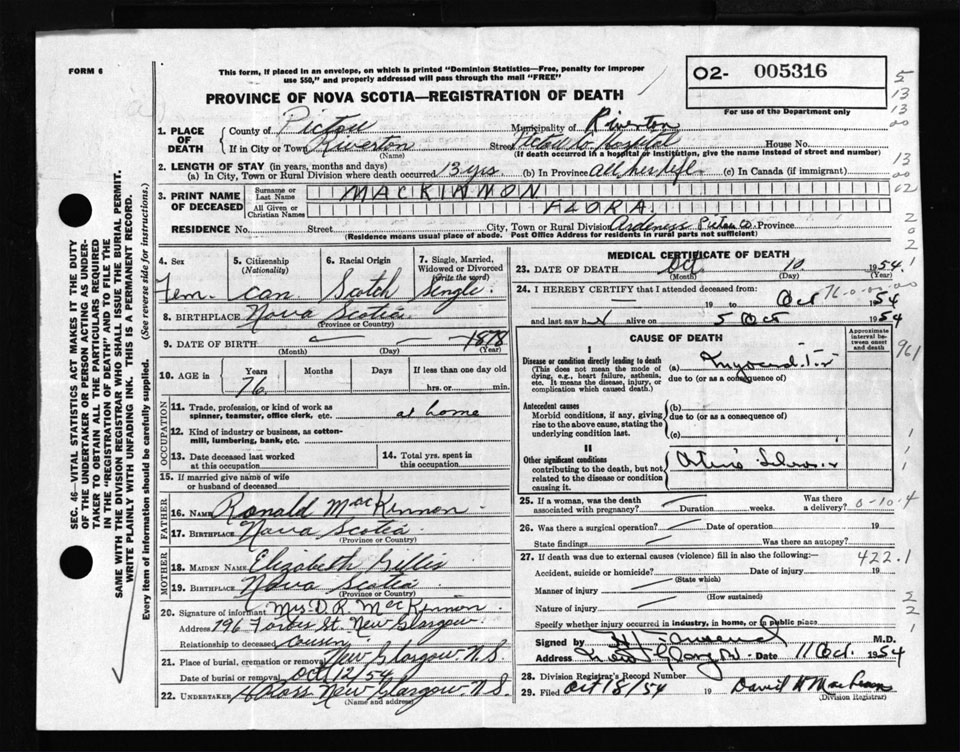 FORM 6
This form, if placed in an envelope, on which is printed "Dominion Statistics—Free, penalty for improper
use $50," and properly addressed will pass through the mail "FREE"
O2- 005316
For use of the Department only
PROVINCE OF NOVA SCOTIA—REGISTRATION OF DEATH
1. PLACE OF DEATH County of Pictou Municipality of Riverton
If in City or Town Riverton (Name) Street Pictou Co. Hospital House No.
(If death occurred in a hospital or institution, give the name instead of street and number)
2. LENGTH OF STAY (in years, months and days)
(a) In City, Town or Rural Division where death occurred 13 yrs. (b) In Province all her life (c) In Canada (if immigrant)
3. PRINT NAME OF DECEASED Surname or Last Name MACKINNON
All Given or Christian Names FLORA
RESIDENCE No. Street City, Town or Rural Division Ardness Pictou Co. Province
(Residence means usual place of abode. Post Office Address for residents in rural parts not sufficient)
4. Sex Fem.
5. Citizenship (Nationality) Can.
6. Racial Origin Scotch
7. Single, Married, Widowed or Divorced (Write the word) Single
8. BIRTHPLACE Nova Scotia
(Province or Country)
9. DATE OF BIRTH 1878
(Month) (Day) (Year)
10. AGE in Years 76 Months Days If less than one day old hrs. or min.
OCCUPATION
11. Trade, profession, or kind of work as spinner, teamster, office clerk, etc. at home
12. Kind of industry or business, as cotton-mill, lumbering, bank, etc.
13. Date deceased last worked at this occupation
14. Total yrs. spent in this occupation
15. If married give name of wife or husband of deceased
FATHER
16. NAME Ronald MacKinnon
17. BIRTHPLACE Nova Scotia
(Province or Country)
MOTHER
18. MAIDEN NAME Elizabeth Gillis
19. BIRTHPLACE Nova Scotia
(Province or Country)
20. Signature of informant Mrs D. R. MacKinnon
Address 196 Forbes St. New Glasgow
Relationship to deceased cousin
21. Place of burial, cremation or removal New Glasgow N.S
Date of burial or removal Oct 12/54
22. UNDERTAKER New Glasgow N.S.
(Name and address)
MEDICAL CERTIFICATE OF DEATH
23. DATE OF DEATH Oct 10 1954
(Year)
24. I HEREBY CERTIFY that I attended deceased from:
19 to Oct 1954
and last saw h alive on 5 Oct 1954
CAUSE OF DEATH
Approximate interval between onset and death
I
Disease or condition directly leading to death (a)
(This does not mean the mode of dying, e.g., heart failure, asthenia, etc. It means the disease, injury, or complication which caused death.)
due to (or as a consequence of)
Antecedent causes (b)
Morbid conditions, if any, giving rise to the above cause, stating the underlying condition last.
due to (or as a consequence of)
(c)
II
Other significant conditions
contributing to the death, but not related to the disease or condition causing it.
25. If a woman, was the death associated with pregnancy? Duration weeks. Was there a delivery?
26. Was there a surgical operation? Date of operation 19
State findings Was there an autopsy?
27. If death was due to external causes (violence) fill in also the following:
Accident, suicide or homicide? Date of injury 19
(State which)
Manner of injury
(How sustained)
Nature of injury
Specify whether injury occurred in industry, in home, or in public place
Signed by M.D.
Address New Glasgow Date 11 Oct. 1954
28. Division Registrar's Record Number
29. Filed Oct 18/54 19 David H MacLean
(Division Registrar)
SEC. 46—VITAL STATISTICS ACT MAKES IT THE DUTY
OF THE UNDERTAKER OR PERSON ACTING AS UNDER-
TAKER TO OBTAIN ALL THE PARTICULARS REQUIRED
IN THE "REGISTRATION OF DEATH" AND TO FILE THE
SAME WITH THE DIVISION REGISTRAR WHO SHALL ISSUE THE BURIAL PERMIT.
WRITE PLAINLY WITH UNFADING INK. THIS IS A PERMANENT RECORD.
Every item of information should be carefully supplied. (See reverse side for instructions.)
5
13
13
00
13
00
02
2
0
2
1
76-0-00-00
961
1
1
1
0-10-4
422.1
2
2
1